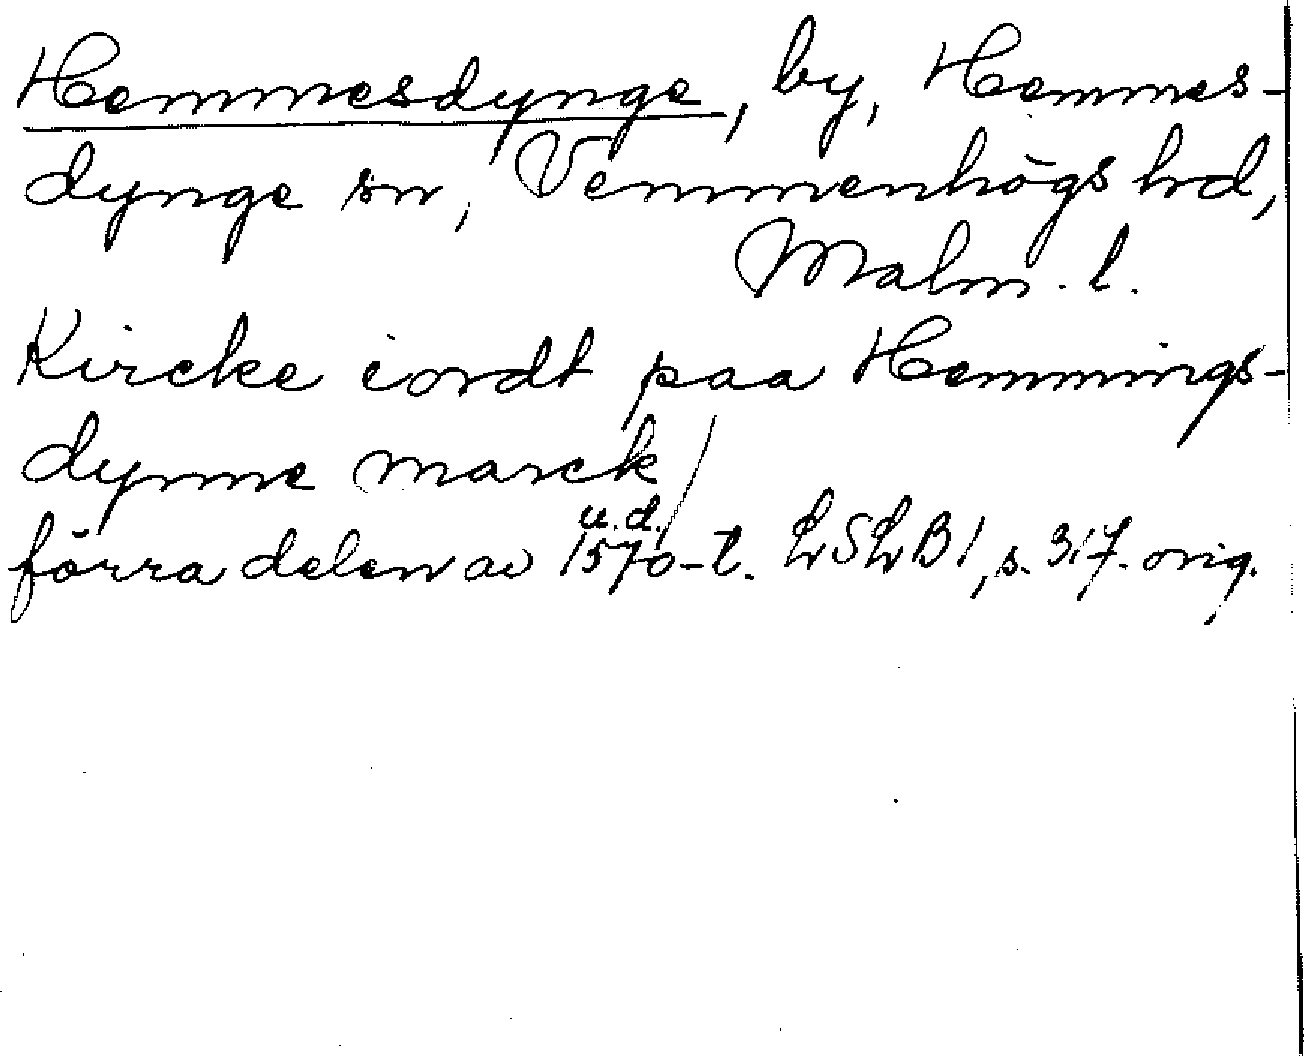 Hemmesdynge, by, Hemmes-
dynge sn, Vemmenhögs hd,
Malm. l.
Kircke iordt paa Hemmings-
dynne marck/
u.d./
förra delen av 1570-t. LSLB1, s. 317. orig.